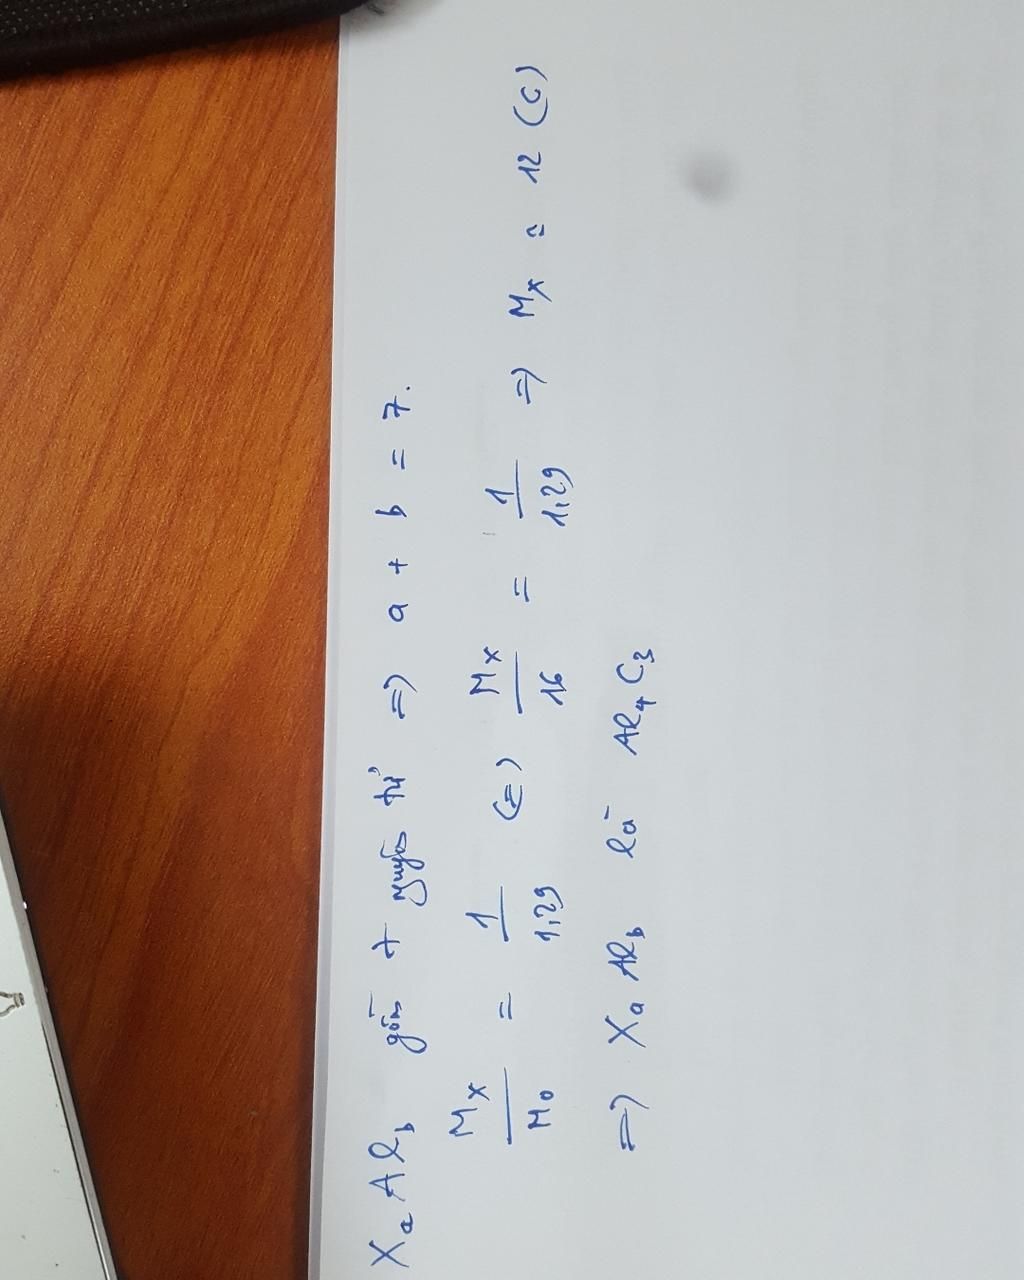 XaAlb gồm 7 nguyên tử => a + b = 7.
Mx/Mo = 1/1,29 (=) Mx/16 = 1/1,29 => Mx = 12 (C)
=> XaAlb là Al4C3